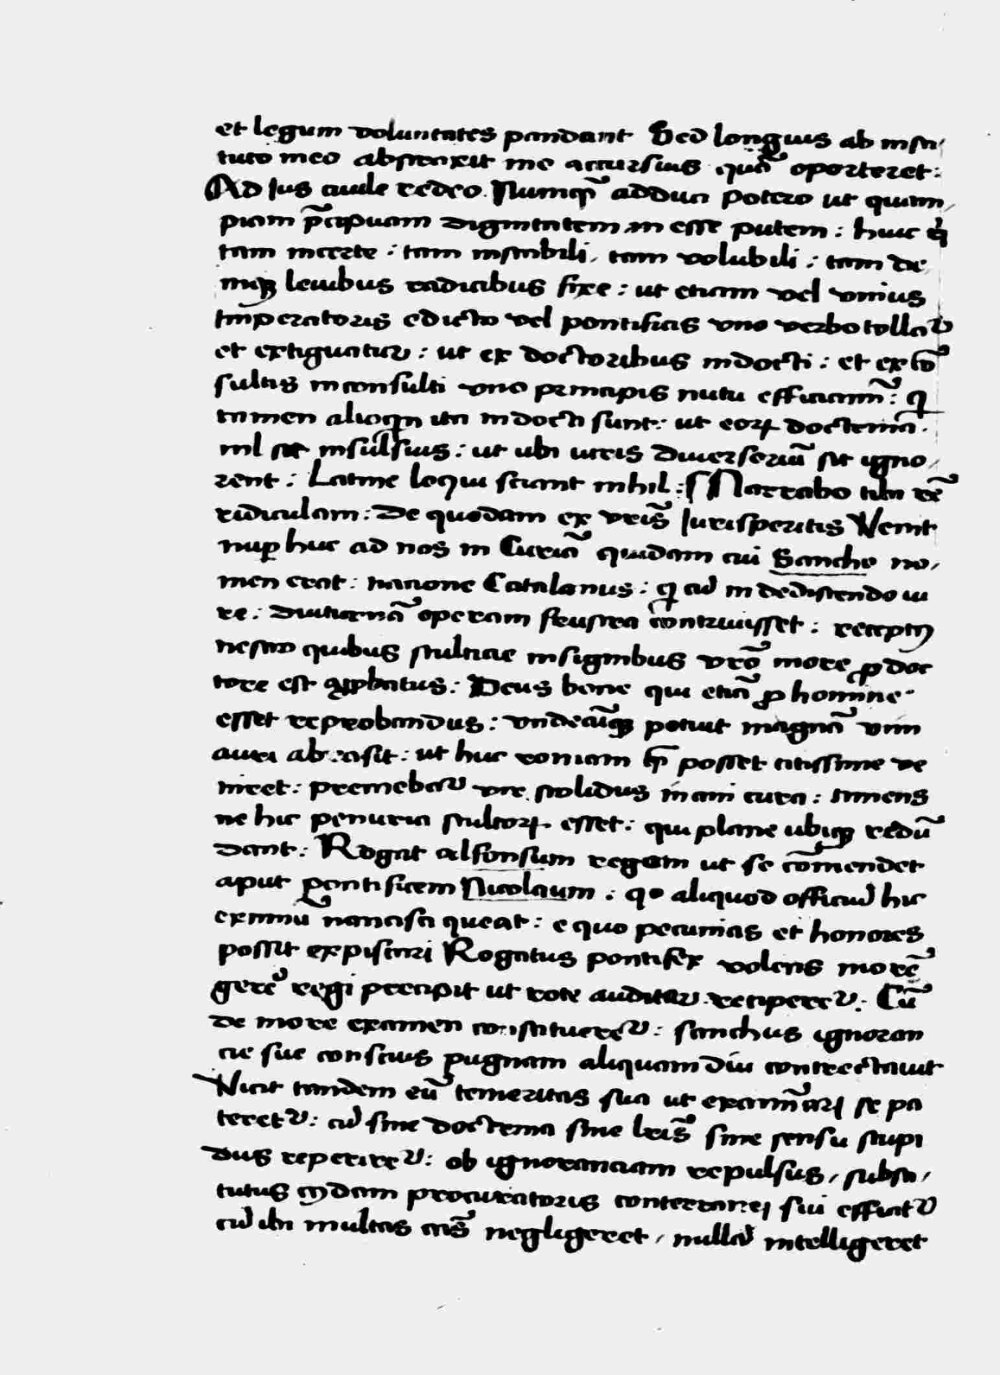 et legum voluntates pandant Sed longius ab insti,
tuto meo abstraxit me accursius quā oporteret:
Ad Jus civile redeo. Numqꝫ adduci potero ut quam,
piam p̄cipuam dignitatem in esse putem: huic
tam incerte: tam instabili, tam volubili: tam de
niqꝫ levibus radicibus fixe: ut etiam vel unius
Imperatoris edicto vel pontificis uno verbo tollat᷑
et extiguatur: ut ex doctoribus indocti: et ex cō
sultis inconsulti uno principis nutu efficiant᷑: q̄
tamen alioqn ita indocti sunt: ut eoꝝ doctrina
nil sit insulsius: ut ubi viris diversoriū sit igno,
rent: Latine loqui sciant nihil: Narrabo tibi rē
ridiculam: De quodam ex vr̄is Jurisperitis Venit
nuꝑ huc ad nos in Curiā quidam cui Sancho no,
men erat: nacione Catalanus: q cū in dediscendo iu
re: diuturnā operam frustra contrivisset: receptis
nescio quibus stulticie insignibus vr̄o more ꝓ doc
tore est aꝓbatus: Deus bone qui etiā ꝓ homine
esset reprobandus: undecūqꝫ potuit magnā vim
auri abrasit: ut huc romam qꝫ posset citissime ve
niret: premebat᷑ vir stolidus inani cura: timens
ne hic penuria stultoꝝ esset: qui plane ubiqꝫ redū
dant: Rogat alfonsum regem ut se cōmendet
aput pontificem Nicolaum: qͦ aliquod officiū hic
eximiū nancisci queat: e quo pecunias et honores
possit expiscari Rogatus pontifex volens morē
gerē regi precipit ut rote auditor reciperet᷑: Cū
de more examen constitueret᷑: sanchus ignoran
cie sue conscius pugnam aliquamdiu contrectavit
Vicit tandem eū temeritas sua ut examinari se pa
teret᷑: cū sine doctrina sine lr̄is sine sensu stupi
dus reperiret᷑: ob ignoranciam repulsus, substi,
tutus cꝫdam procuratoris conterranei sui efficit᷑
cū ibi multas cās negligeret, nullā intelligeret